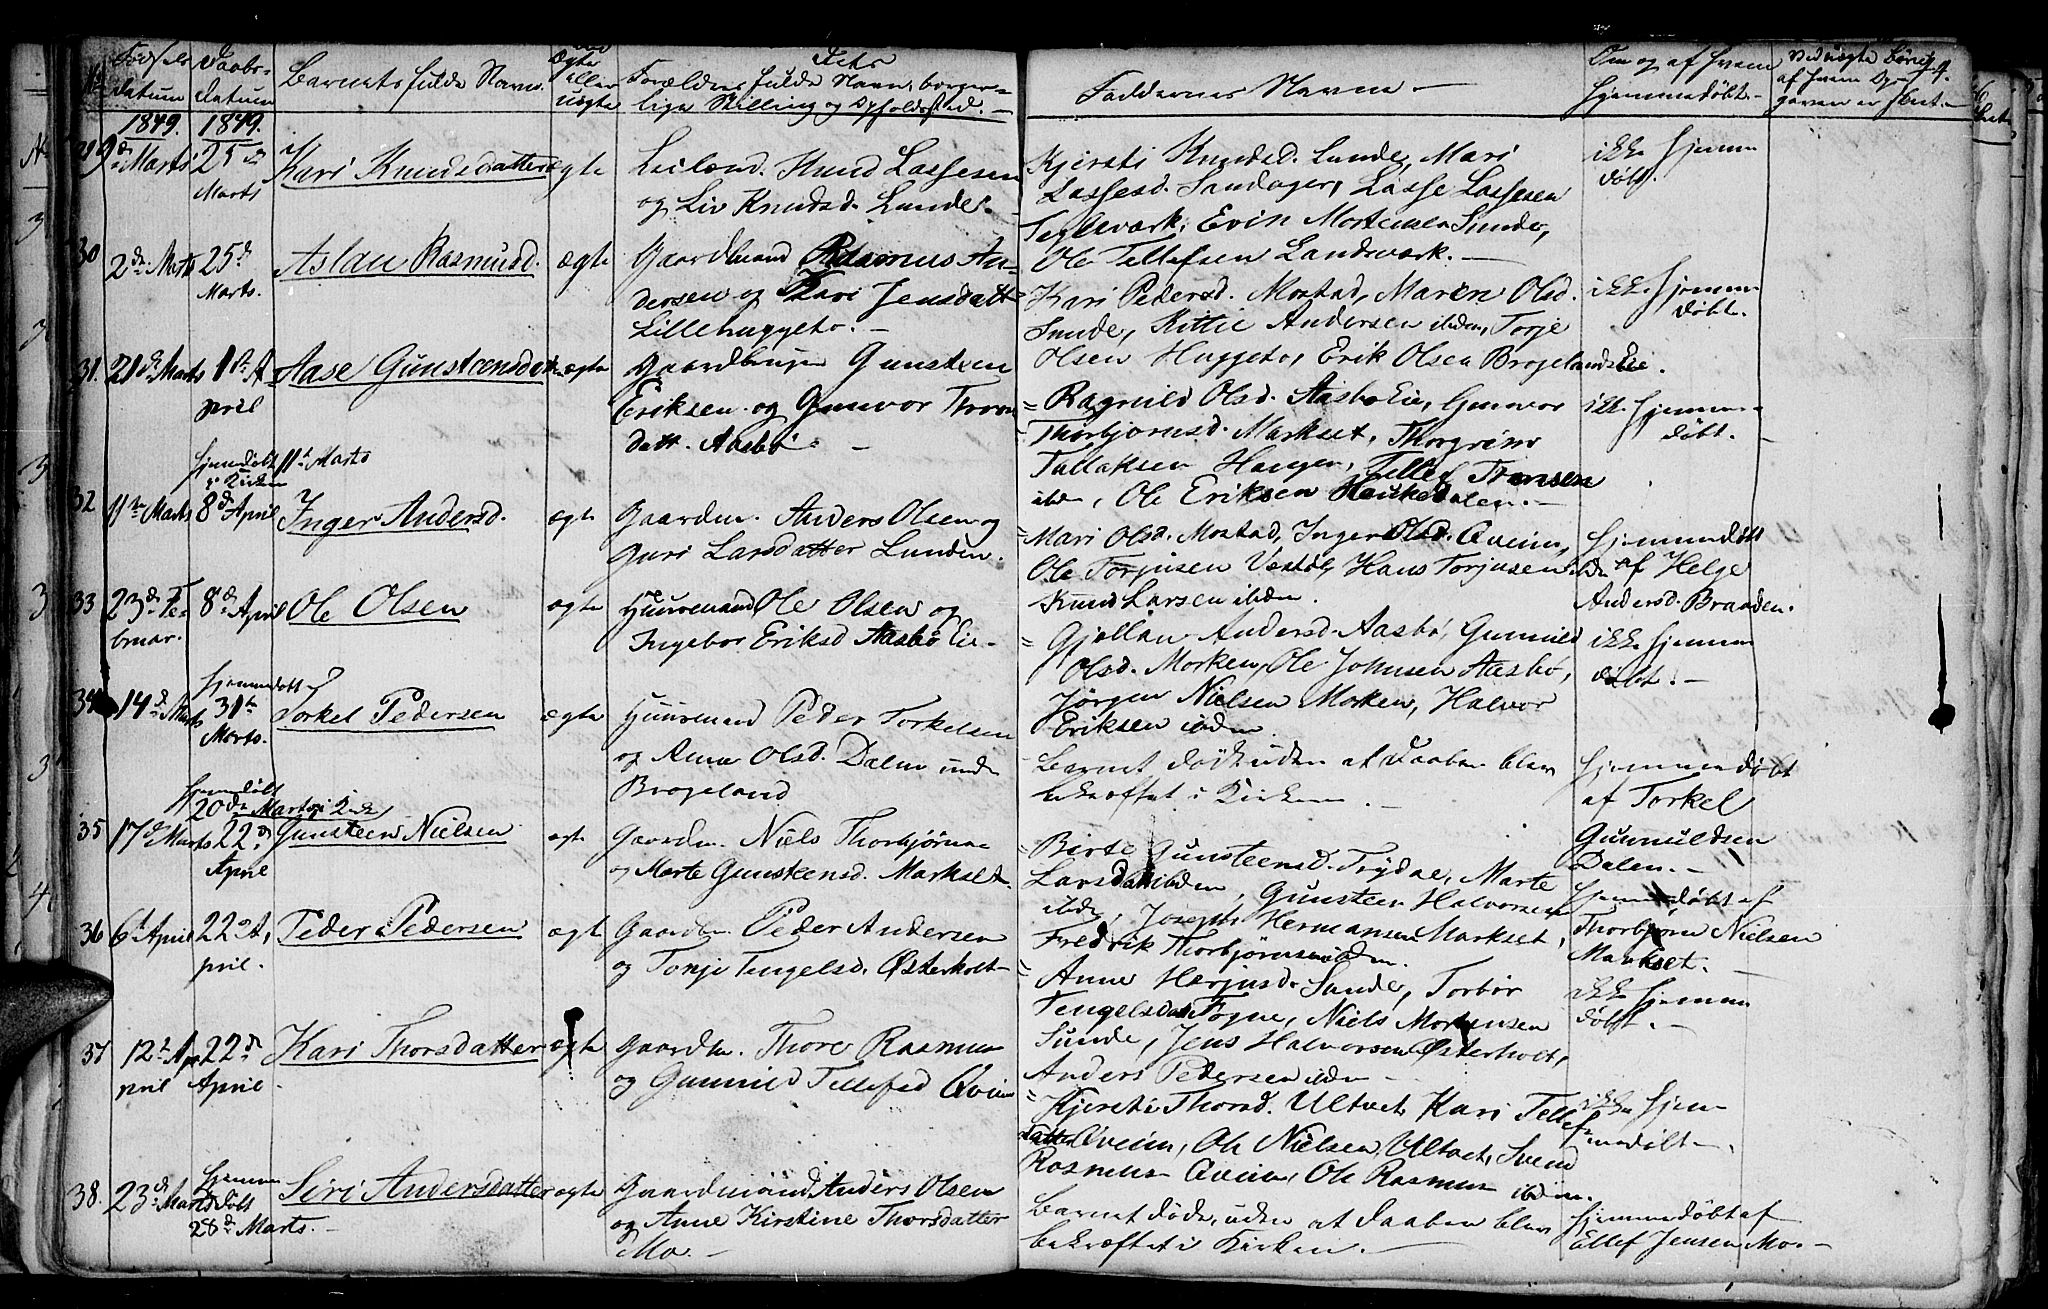 Fødsels Daabs- Barnets fulde Navn. Ægte eller uægte Dets Forældres fulde Navn, borger- Faddernes Navne. Om og af hvem Ved uægte Børn 14.
datum datum lige Stilling og Opholdssted. hjemmedøbt. af hvem Op-
gaven er skeet.
1849. 1849.
29 9de Marts 25de Marts Kari Knudsdatter ægte Leilænd. Knud Lassesen
og Liv Knudsd. Lunde.
Kjersti Knudsd. Lunde, Mari
Lassesd. Sandager, Lasse Lassesen
Teglverk, Evin Mortensen Sunde,
Ole Tellefsen Landsverk.
ikke hjemme
døbt.
30 2den Marts 25de Marts. Aslau Rasmusd. ægte Gaardmand Rasmus An-
dersen og Kari Jensdatt
Lillehuggeto.
Kari Pedersd. Mostad, Maren Olsd.
Sunde, Kittil Andersen ibiden, Torje
Olsen Huggeto, Erik Olsen BrogelandsEie.
ikke hjemme
døbt.
31. 21de Marts 1ste A
pril Aase Gunsteensdatt. ægte Gaardbruger Gunsteen
Eriksen og Gunvor Thron
datt. Aasbø
Ragnild Olsd. AasbøEie, Gunvor
Thorbjørnsd. Markset, Thorgrim
Tallaksen Haugen, Tellef Tronsen
ibdn, Ole Eriksen
ikke hjemme
døbt.
hjemmedøbt 11te Marts
i Kirken
32 11te Marts 8de April Inger Andersd. ægte Gaardm. Anders Olsen og
Guri Larsdatter Lunden.
Mari Olsd. Mostad, Inger Olsd. Qveim,
Ole Torjusen Vestøl, Hans Torjusen ibdn
Knud Larsen ibiden.
hjemmedøbt
af Helge
Andersd. Braaden.
33 23de Fe-
bruar. 8de April Ole Olsen ægte Huusmand Ole Olsen og
Ingebor Eriksd Aasbø Eie
Gjøllau Andersd. Aasbø, Gunnild
Olsd. Morken, Ole Johnsen Aasbø,
Jørgen Nielsen Morken, Halvor
Eriksen ibiden.
ikke hjemme
døbt.
34 14de Marts hjemmedøbt
31te
Marts. Torkel Pedersen ægte Huusmand Peder Torkelsen
og Anne Olsd. Dalen under
Brogeland
Barnet døde uden at Daaben blev
bekræftet i Kirken.
hjemmedøbt
af Torkel
Gunnuldsen
Dalen.
hjemmedøbt
20de Marts i Kirke
35 17de Marts 22de
April Gunsteen Nielsen ægte Gaardm. Niels Thorbjørns.
og Marte Gunsteensd. Markset.
Birte Gunsteensd. Trydal, Marte
Larsdatt ibiden, Gunsteen Halvorsen
ibdn, Joseph Hermansen Markset,
Fredrik Thorbjørnsen ibiden.
hjemmedøbt af
Thorbjørn Nielsen
Markset.
36 6te April 22de A-
pril. Peder Pedersen ægte Gaardm. Peder Andersen
og Tonje Tengelsd. Østerholt
Anne Herjusd. Sunde, Torbør
Tengelsdatt Fogne, Niels Mortensen
Sunde, Jens Halvorsen Østerholt,
Anders Pedersen ibdn
ikke hjemme
døbt.
37 12te A-
pril 22de
April Kari Thorsdatter ægte Gaardm. Thore Rasmus
og Gunnild Tellefsd Qveim
Kjersti Thorsd. Ultvet, Kari Tellefs
datter Qveim, Ole Nielsen Ultvet, Svend
Rasmus Qveim, Ole Rasmus ibiden.
ikke hjem-
medøbt.
38. 23de Marts hjemme
døbt
28de Marts. Siri Andersdatter ægte Gaardmand Anders Olsen
og Anne Kirstine Thorsdatter
Mo.
Barnet døde, uden at Daaben blev
bekræftet i Kirken.
hjemmedøbt af
Ellef Jensen Mo.